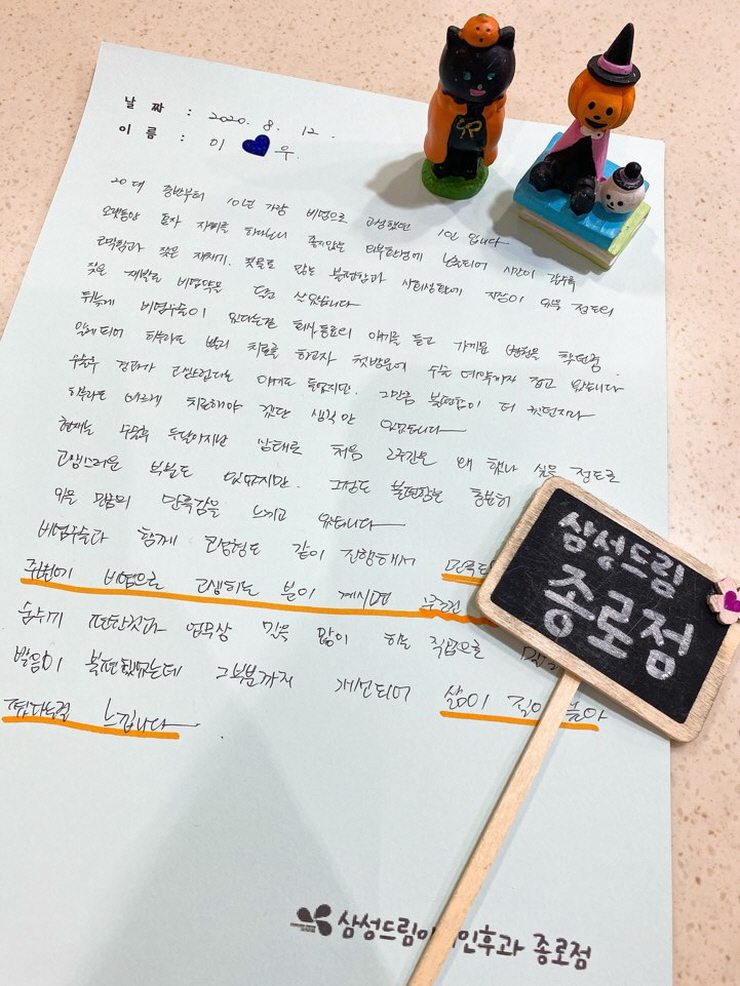 날 짜 : 2020. 8. 12.
이 름 : 이 우.
20대 중반부터 10년 가량 비염으로 고생했던 1인 입니다
오랫동안 혼자 자취를 하다보니 좋지않은 환경에 노출되어 시간이 갈수록
코막힘과 잦은 재채기. 콧물로 많은 불편함과 사회생활에 지장이 있을 정도의
잦은 재발로 비염약을 달고 살았습니다
뒤늦게 비염수술이 있다는걸 회사동료의 얘기를 듣고 가까운 병원을
알게되어 하루라도 빨리 치료를 하고자 첫방문에 수술 예약까지 잡고 왔습니다
수술후 경과가 고생스럽다는 얘기도 들었지만. 그만큼 불편함이 더 컸던지라
하루라도 빠르게 치료해야 겠단 생각만 있었습니다
현재는 수술후 두달이지난 상태로 처음 2주간은 왜 했나 싶을 정도로
고생스러운 부분도 있었지만. 그정도 불편함은 충분히
잊을 만큼의 만족감을 느끼고 있습니다
비염수술과 함께 코성형도 같이 진행해서
주변에 비염으로 고생하는 분이 계시면
숨쉬기 편한것과 업무상 말을 많이 하는 직업으로
발음이 불편했었는데 그부분까지 개선되어 삶이 질이 높아
졌다는걸 느낍니다.
삼성드림
종로점
삼성드림이 인후과 종로점